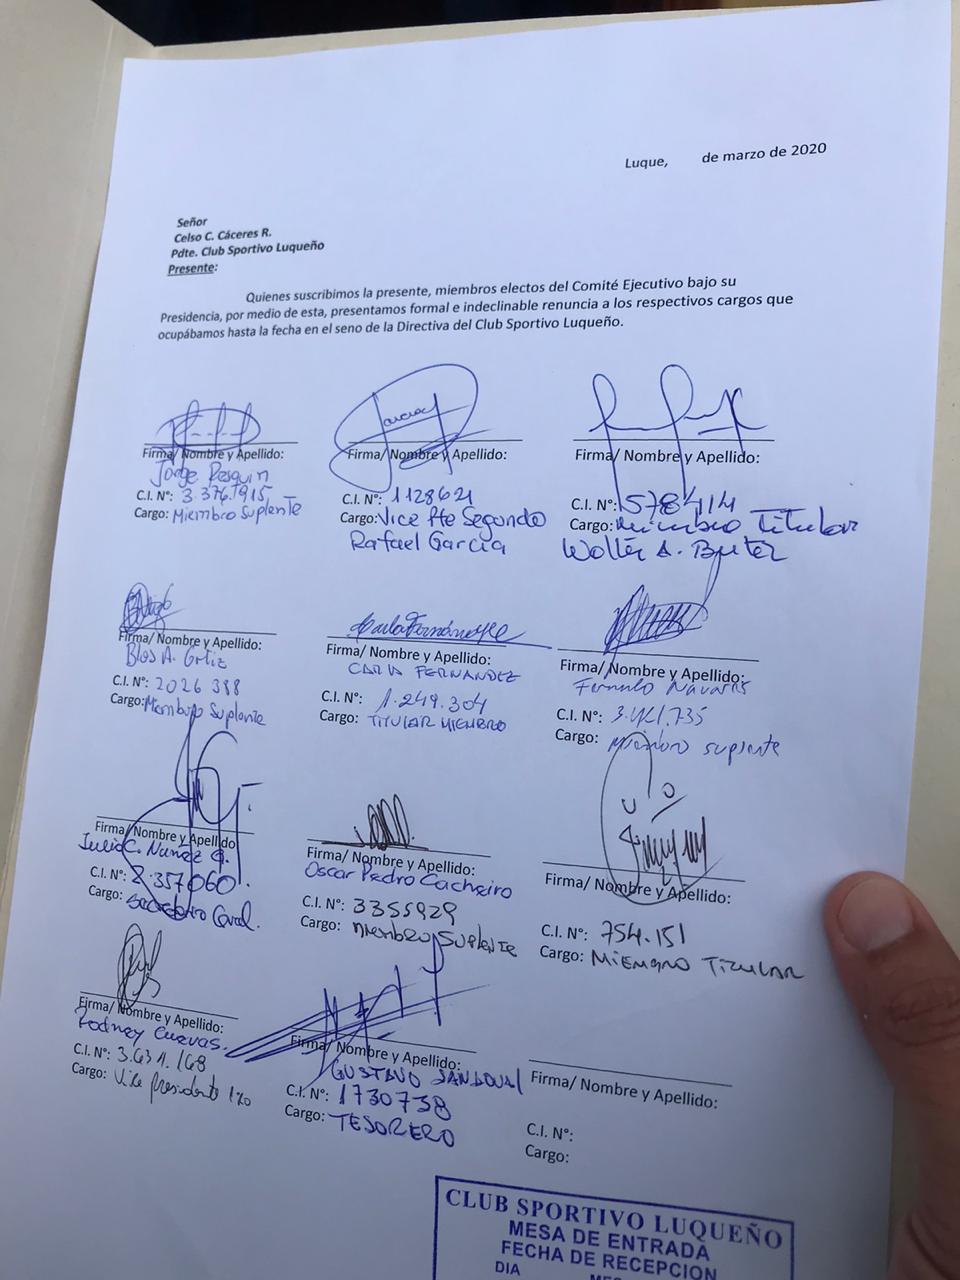 Luque, de marzo de 2020
Señor
Celso C. Cáceres R.
Pdte. Club Sportivo Luqueño
Presente:
Quienes suscribimos la presente, miembros electos del Comité Ejecutivo bajo su
Presidencia, por medio de esta, presentamos formal e indeclinable renuncia a los respectivos cargos que
ocupábamos hasta la fecha en el seno de la Directiva del Club Sportivo Luqueño.
Firma/ Nombre y Apellido:
Jorge Resquin
C.I. N°: 3.376.915
Cargo: Miembro Suplente
Firma/ Nombre y Apellido:
C.I. N°: 1128621
Cargo: Vice Pte Segundo
Rafael Garcia
Firma/ Nombre y Apellido:
C.I. N°: 1578414
Cargo: Miembro Titular
Walter A.
Firma/ Nombre y Apellido:
Blas A. Ortiz
C.I. N°: 2026388
Cargo: Miembro Suplente
Carla Fernández
Firma/ Nombre y Apellido:
CARLA FERNANDEZ
C.I. N°: 1.249.304
Cargo: TITULAR MIEMBRO
Firma/ Nombre y Apellido:
Navarro
C.I. N°:
Cargo: Miembro suplente
Firma/ Nombre y Apellido
Julio C. Nuñez G.
C.I. N°: 2.357060.
Cargo: Secretario Gral.
Firma/ Nombre y Apellido:
Oscar Pedro Cacheiro
C.I. N°: 3355929
Cargo: Miembro Suplente
Firma/ Nombre y Apellido:
C.I. N°: 754.151
Cargo: MIEMBRO TITULAR
Firma/ Nombre y Apellido:
Rodney Cuevas.
C.I. N°: 3.631.168
Cargo: Vice presidente 1ro
Firma/ Nombre y Apellido:
GUSTAVO SANDOVAL
C.I. N°: 1730738
Cargo: TESORERO
Firma/ Nombre y Apellido:
C.I. N°:
Cargo:
CLUB SPORTIVO LUQUEÑO
MESA DE ENTRADA
FECHA DE RECEPCION
DIA